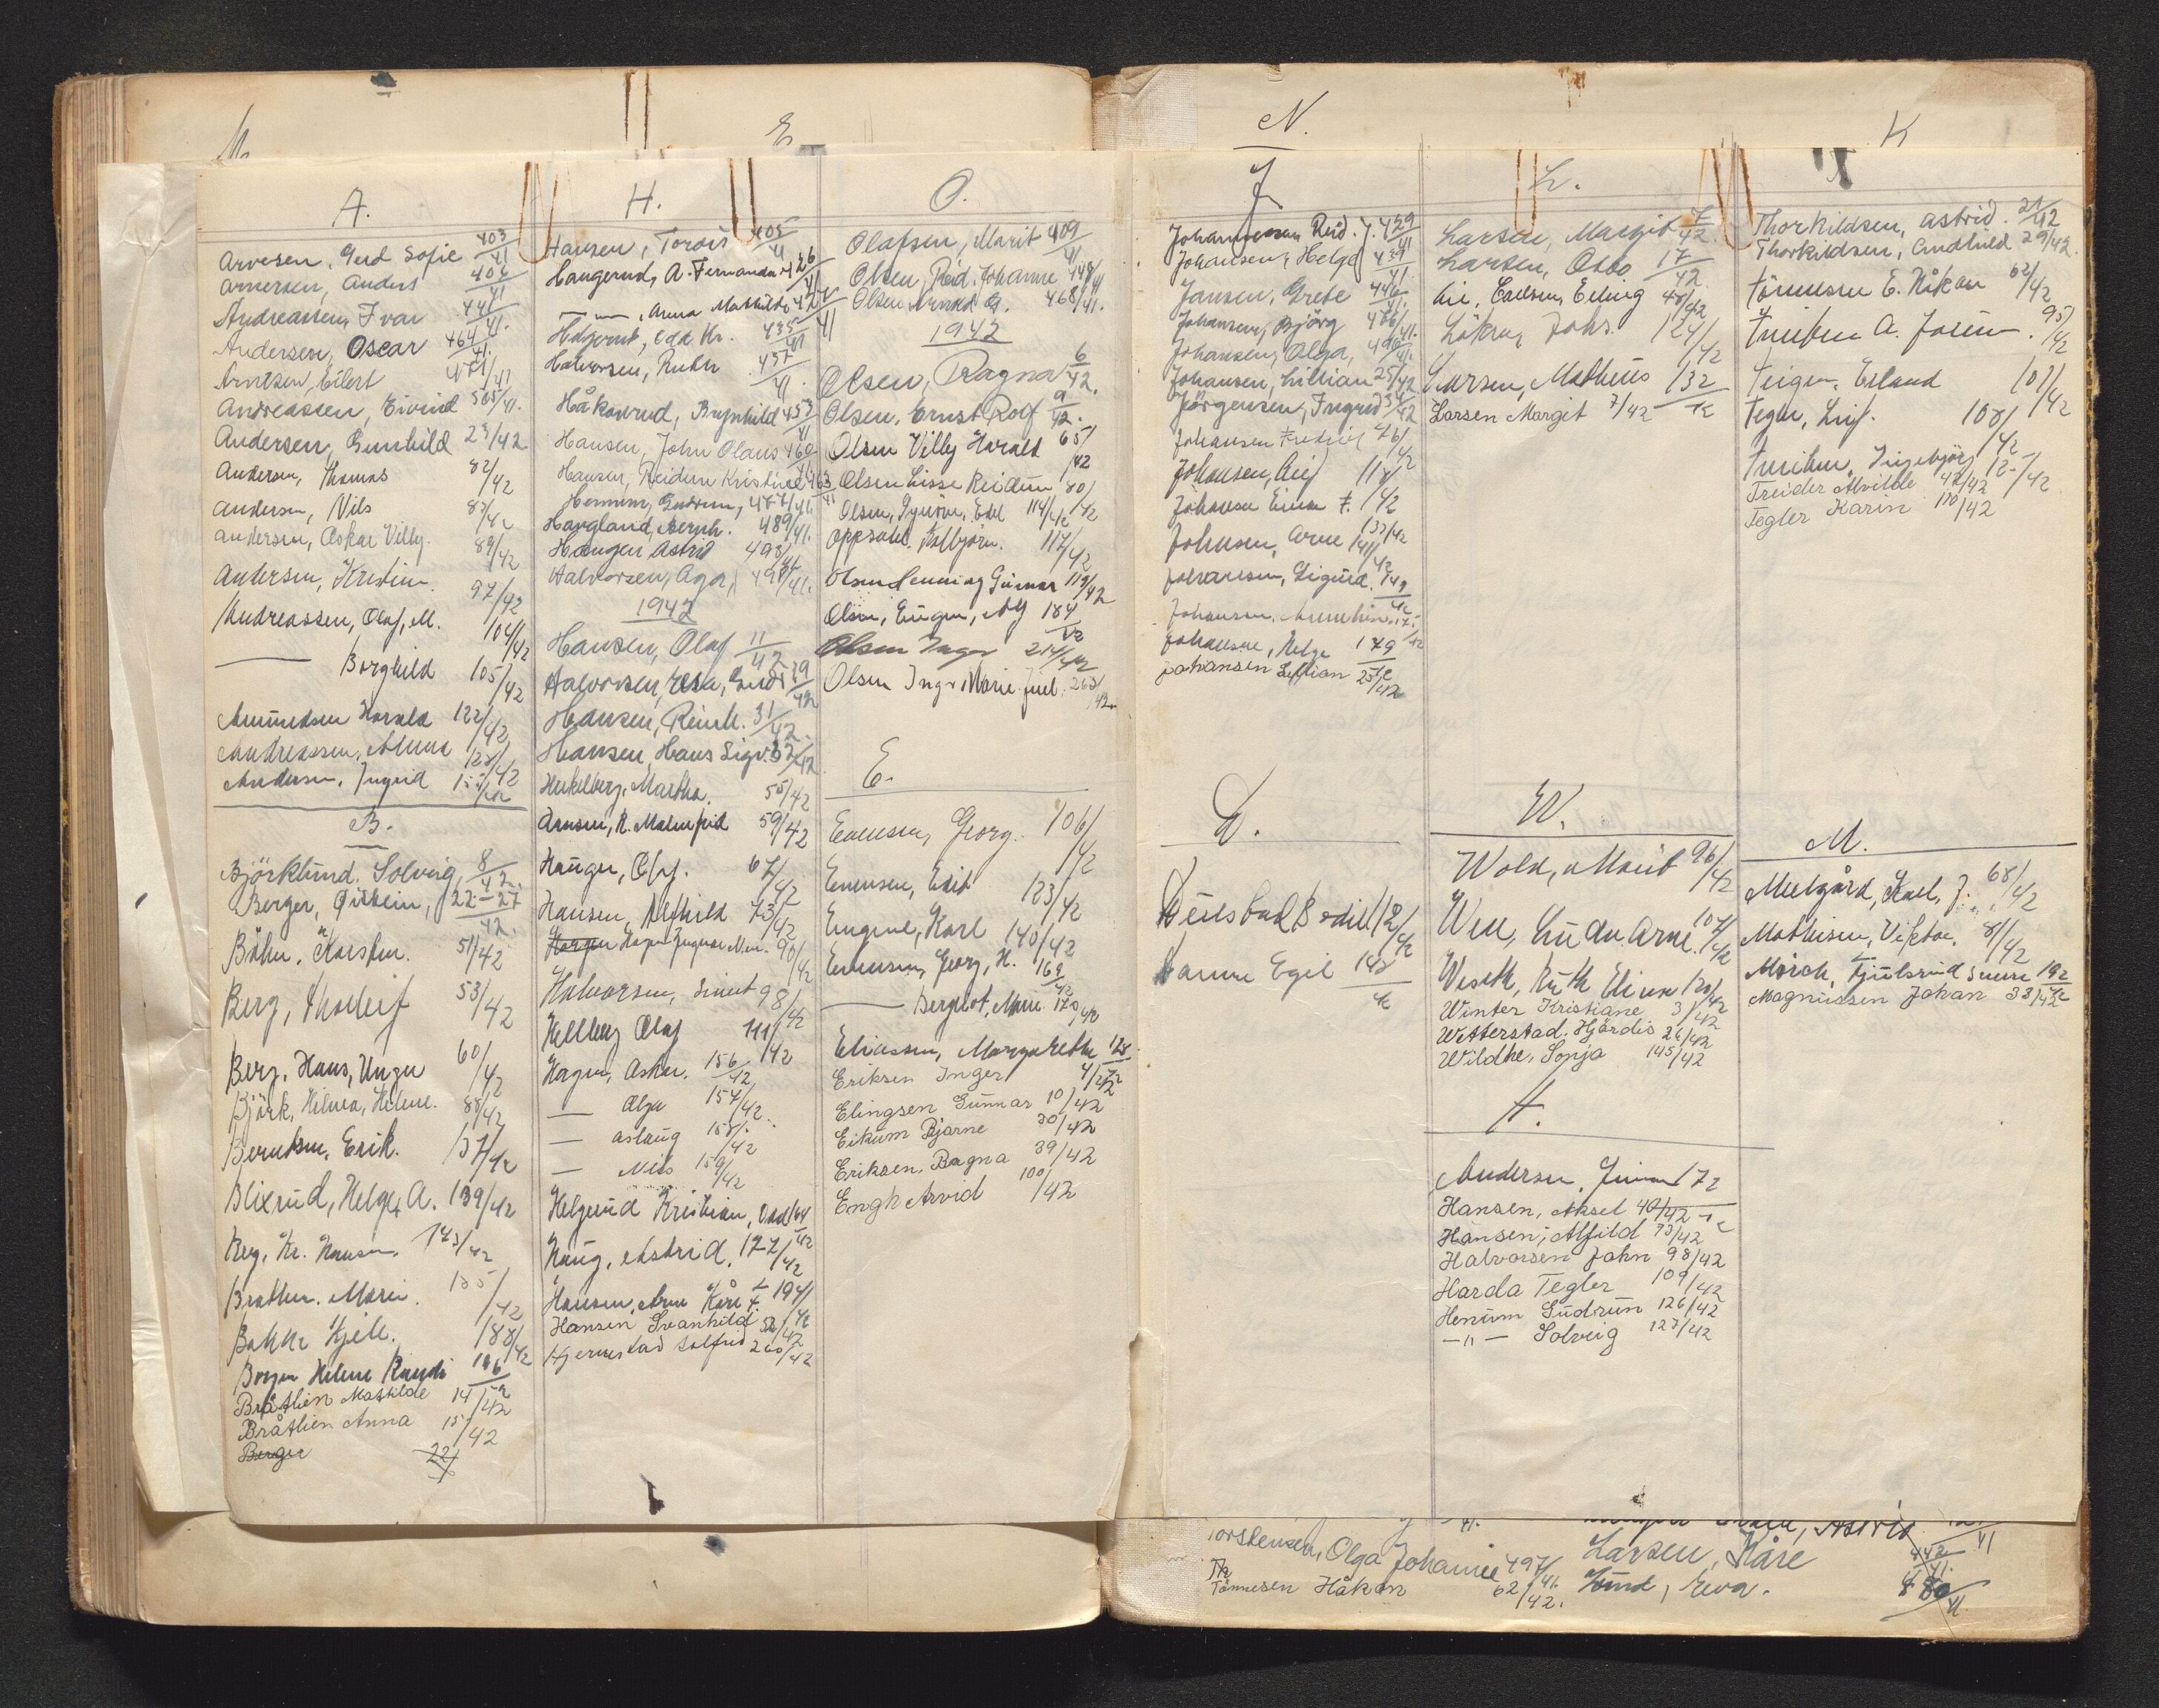 E
N.
K
A.
Arvesen, Gerd Sofie 403/41
Arnersen, Anders 406/41
Andreassen, Ivar 441/41.
Andersen, Oscar 464/41.
Arntzen, Eilert
Andreassen, Eivind 505/41.
Andersen, Gunhild 23/42
Andersen, Thomas 82/42
Andersen, Nils 83/42
Andersen, Oskar Villy. 89/42
Andersen, Kristin. 97/42
Andreassen, Olaf, M. 104/42
— Borghild 105/42
Amundsen Harald 122/42
Andreassen, Anna 128/42
Andersen, Ingrid 155/42
B.
Björklund, Solveig 8/42.
Berger, Öistein, 22-27/42.
Böhn, Karsten. 51/42
Berg, Thorleif 53/42
Berg, Hans, Unger 60/42
Björk, Hilma, Helene. 88/42
Berntsen, Erik. 137/42
Blixrud, Helge, A. 139/42
Berg, Kr. Hansen. 143/42
Bråthen. Marie.
Bakke Kjell. 188/42
Helene Randi
Bråthen Mathilde 14/42
Bråthen Anna 15/42
Berger 22/
H.
Hansen, Tordis 405/41
Haugerud, A. Fernanda 426/41
— " — , Anna Mathilde 427/41
Helgerud, Odd Kr. 435/41
Halvorsen, Ruth 437/41.
Håkonrud, Brynhild 453/41
Hansen, John Olaus 460/41
Hansen, Reidun Kristine 463/41
Hennum, Gudrun, 477/41
Haugland, Bernh. 489/41.
Haugen, Astrid 493/41
Halvorsen, Aga, 498/41.
1942
Hansen, Olaf 11/42
Halvorsen, Elsa, Gudr. 29/42
Hansen, Reinh. 31/42.
Hansen, Hans Sigv. 32/42
Heckelberg, Martha. 55/42
59/42
Haugen, Olaf. 67/42
Hansen, Alfhild 73/42
90/42
Halvorsen, 98/42
Hellberg Olaf 111/42
Hagen, Asker. 156/42
— Olga 157/42.
— Aslaug 158/42
— Nils 159/42
Helgerud Kristian, Odd 164/42
Haug, Astrid, 177/42
Hansen, Arne Kåre 194/42
Hansen Svanhild 52/42
Hjermstad Solfrid 260/42
O.
Olafsen, Marit 409/41
Olsen, Reid. Johanne 448/41
Olsen Arnold G. 468/41.
1942
Olsen, Ragna 6/42.
Olsen, Ernst Rolf 9/42.
Olsen Villy Harald 65/42
Olsen Lisse Reidun 80/42
Olsen, Synnöve, Edel 114/42
Oppsahl. Kolbjörn. 117/42
Olsen Henning Gunnar 119/42
Olsen, Eugen, Alf 184/42
Olsen Inger 214/42
Olsen Inger Marie Juel. 263/42
E.
Evensen, Georg. 106/42
Evensen, Edit 123/42
Eugene, Karl 140/42
Evensen, Georg, H. 169/42
— Bergliot, Marie 170/42
Eliassen, Margarethe 178
Eriksen Inger 4/42
Elingsen Gunnar 10/42
Eikum Bjarne 30/42
Eriksen, Ragna 39/42
Engh Arvid 100/42
J
Johannessen, Reid. J. 429/41
Johansen, Helge 439/41.
Jansen, Grete 446/41.
Johansen, Björg 476/41.
Johansen, Olga, 496/41.
Johansen, Lillian 25/42
Jörgensen, Ingrid 34/42
Johansen Fredrik 76/42
Johansen, Leif 118/42
Johansen Einar F.
Johnsen, Arne 141/42
Johansen, Sigurd. 149/42
Johansen,
Johansen, Helge 179/42
Johansen Lillian 25/42
L.
Larsen, Margit 7/42.
Larsen, Osbo 17/42.
Lie, Carlsen, Erling 48/42
Löken, Johs. 124/42
Larsen, Matheus 132/42
Larsen Margit 7/42
Thorkildsen, Astrid. 21/42
Thorkildsen, Gudhild 29/42.
Tönnesen E. Håkon 62/42
95/42
Teigen, Erland 107/42
Tegler, Leif. 108/42
Ingebjörg 125/42
Treider Alvilde 42/42
Tegler Karin 110/42
D.
Bodil 112/42
Egil 148/42
W.
Wold, Marit 96/42
Arne 104/42
Weseth, Ruth Elinor 120/42
Winter Kristiane 3/42
Wetterstad. Hjördis 26/42
Wildhe, Sonja 145/42
H.
Andersen, Gunnar 172/42
Hansen, Aksel 40/42
Hansen, Alfild 73/42
Halvorsen John 98/42
Harda Tegler 109/42
Hennum Gudrun 126/42
— " — Solveig 127/42
M.
Melgård, Karl, J. 68/42
Mathisen, Viktor. 81/42
Mörch, Fjulsrud Signe 192/42
Magnussen Johan 33/42
Torstensen, Olga Johanne 497/41
Th
Tönnesen Håkon 62/42.
Astrid
Larsen, Kåre 442/41.
Lund, Eva. 480/41.